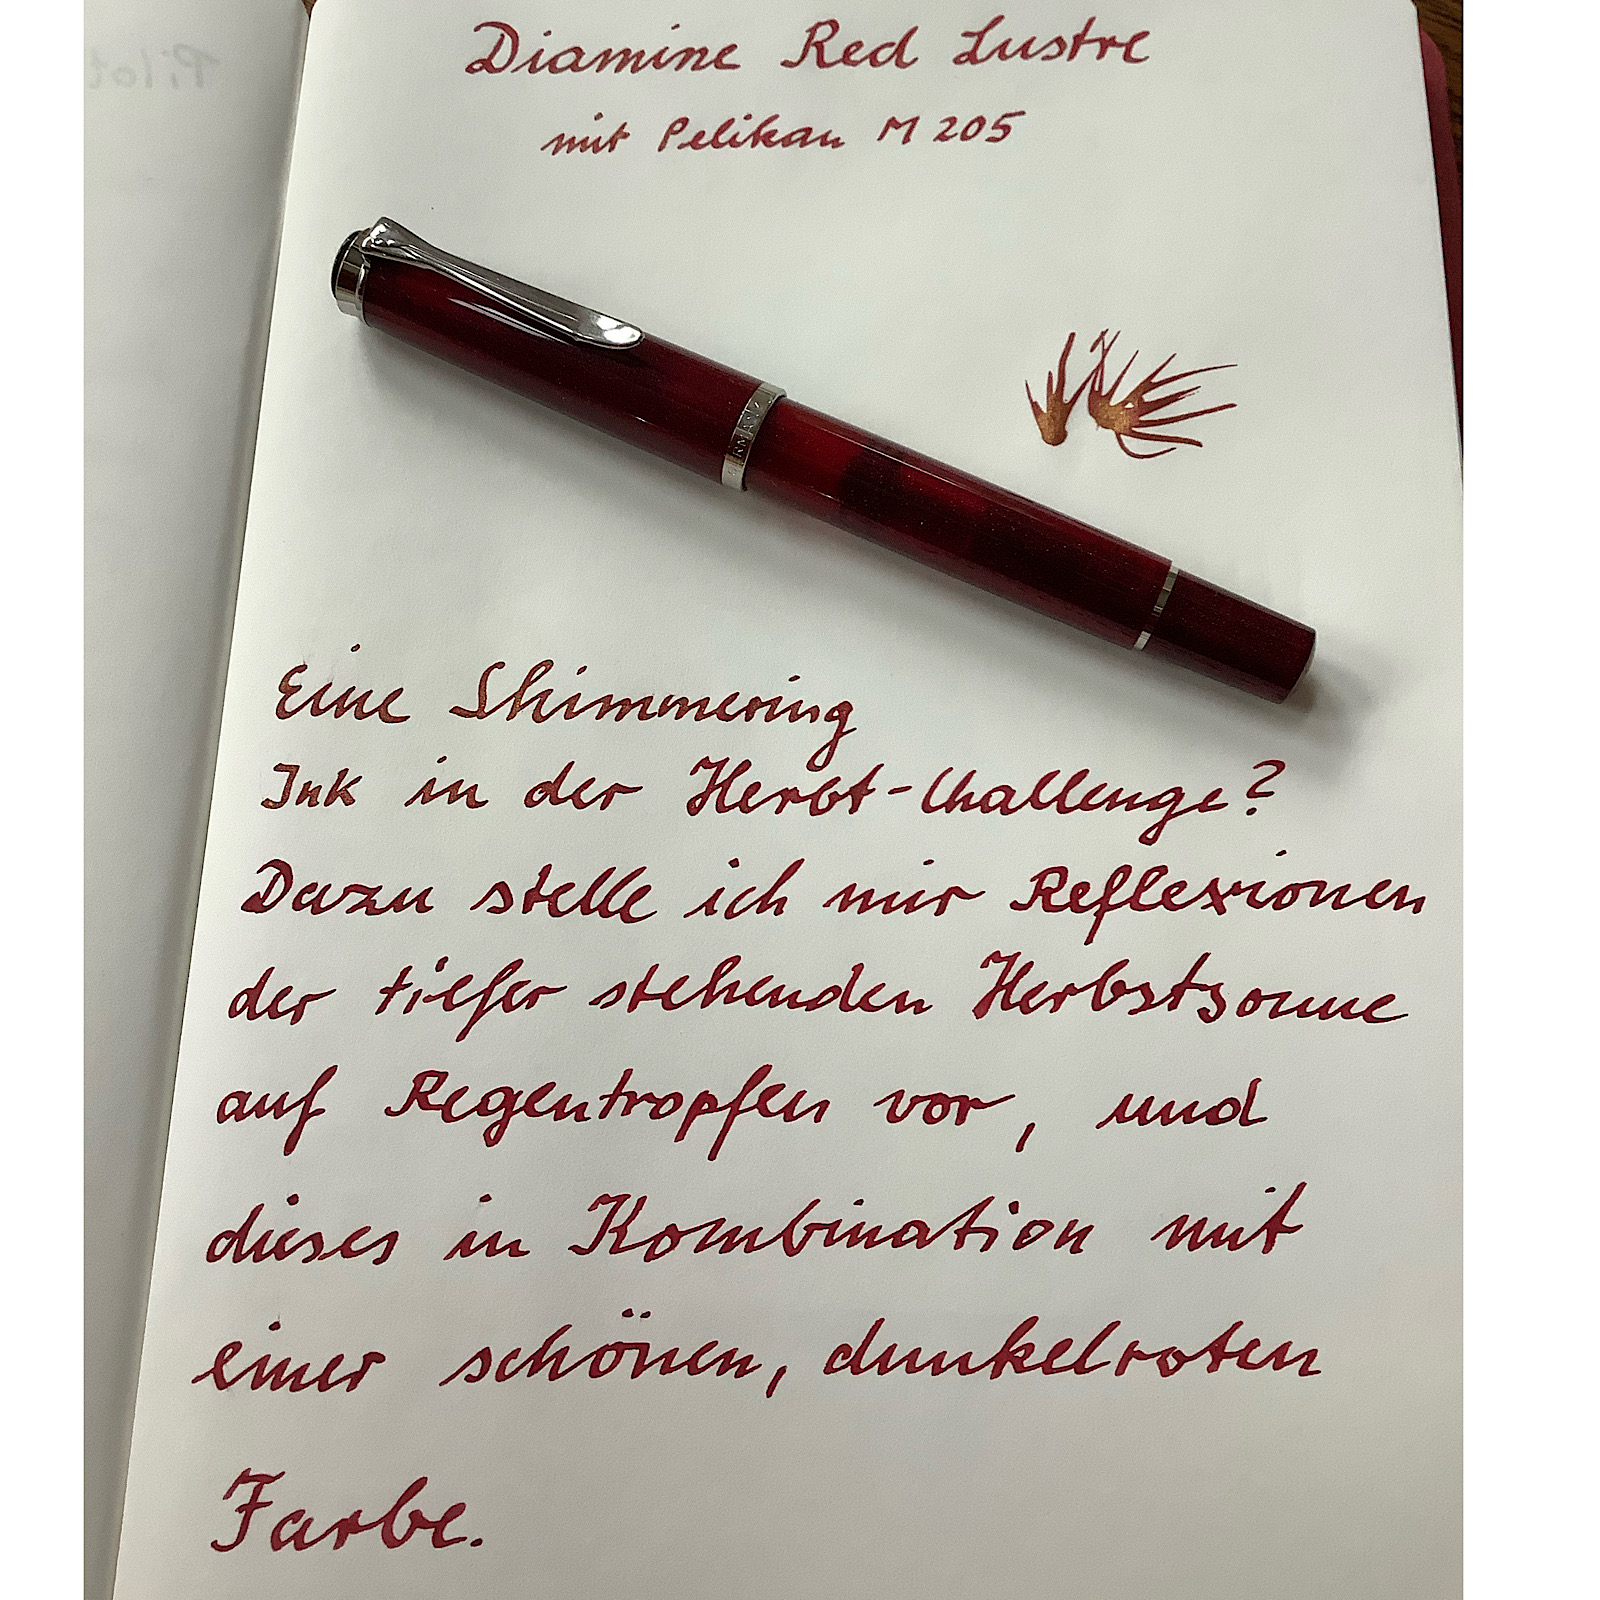 Pilot
Diamine Red Lustre
mit Pelikan M 205
Eine Shimmering
Ink in der Herbt-Challenge?
Dazu stelle ich mir Reflexionen
der tiefer stehenden Herbstsonne
auf Regentropfen vor, und
dieses in Kombination mit
einer schönen, dunkelroten
Farbe.